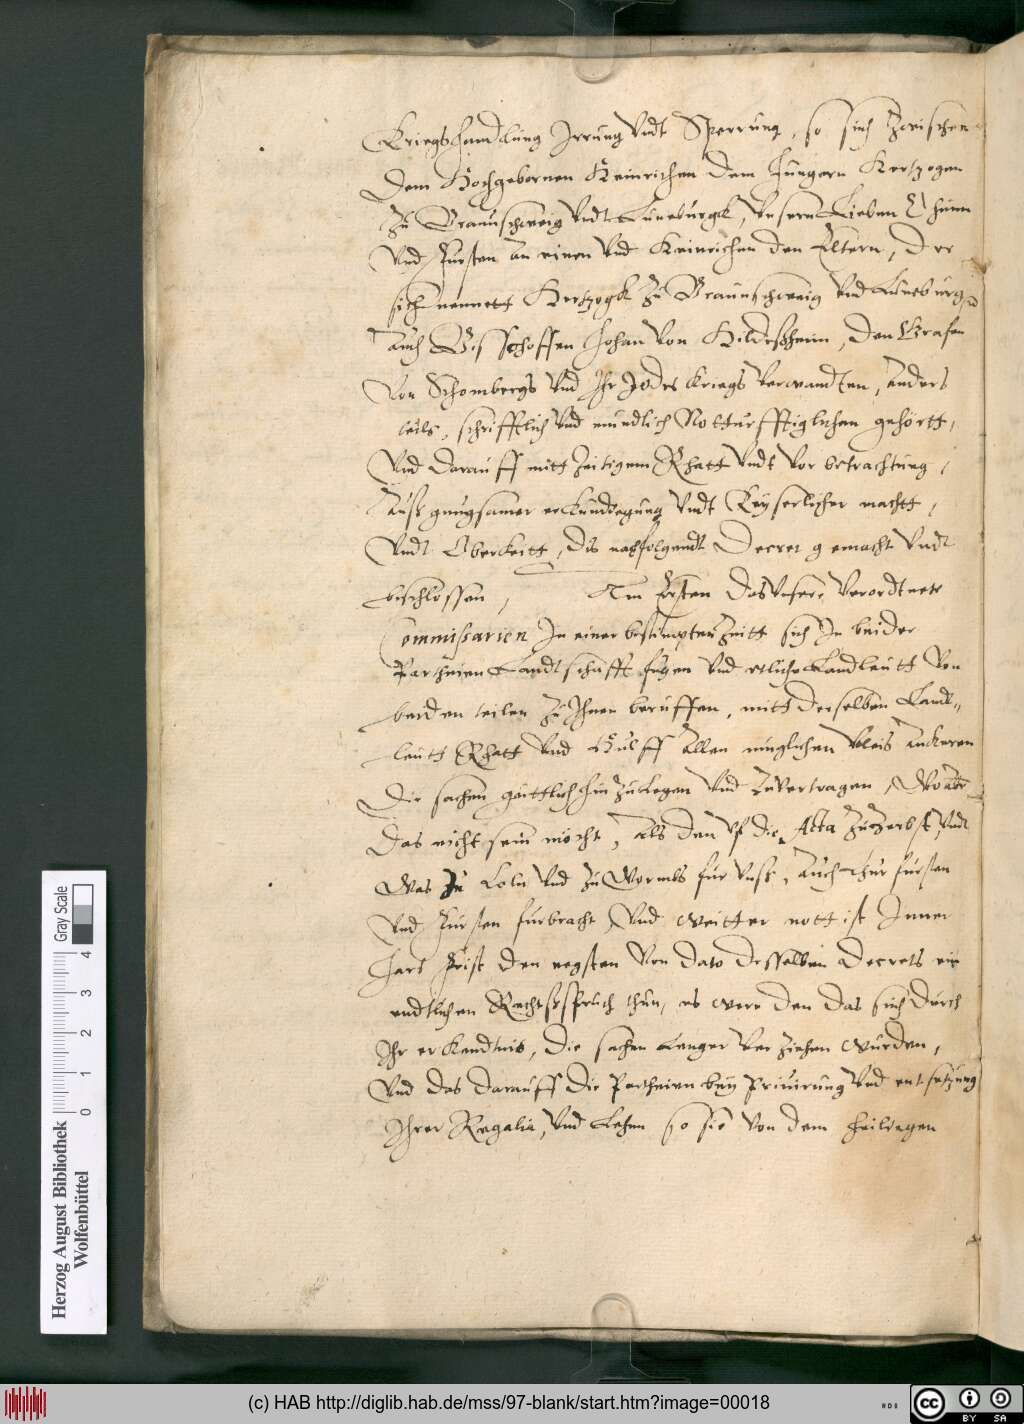 Kriegshandlung Irrung vndt Sperrung, so sich Zwischen
Dem Hochgebornen Heinrichen dem Jungern Hertzogen
Zu Braunschweig vndt Luneburgk, vnsern Lieben Ohmen
vnd Fursten an einen vnd Heinrichen den Eltern, Der
sich nennett Hertzogk Zu Braunschweig vnd Luneburg
auch Bisschoffen Johan von Hildeßheim, den Grafen
von Schombergs vnd Ihr Jdes Kriegs verwandten, anders
teils, schrifftlich vnd mundlich Notturfftiglichen gehörtt,
vnd darauff mitt Zeitigem Rhatt vndt vor betrachtung,
auß gnugsamer erkundegung vndt Keyserlicher machtt,
vndt Oberkeitt, dis nachfolgendt Decret gemacht vndt
beschlossen, Am Ersten Das vnsere verordtnete
Commissarien In einer bestimpten Zeitt sich In beider
Partheien Landtschafft fugen vnd etliche Landleutt von
beiden teilen Zu Ihnen beruffen, mitt derselben Landt„
leutt Rhatt vnd Hulff allen muglichen vleis ankeren
Die sachen güttlich hin Zu Legen vnd Zuvertragen, Wo aber
Das nicht sein möcht, als den vf die Acta Zu Zerbst vndt
Was Zu Coln vnd Zu Wormbs fur vnß, auch Churfursten
vnd Fursten furbracht, vnd weitter nott ist Inner
Jars Frist den negsten von dato desselben Decrets ein
endtlichen Rechtßspruch thun, es were den das sich durch
Ihr erkendtnis, die sachen Lenger verziehen wurden,
vnd das darauff die Partheien bey Priuirung vnd entsetzung
Ihrer Regalia, vnd Lehen so sie von dem heiligen
Herzog August Bibliothek
Wolfenbüttel
Gray Scale
0 1 2 3 4
(c) HAB http://diglib.hab.de/mss/97-blank/start.htm?image=00018
cc BY SA